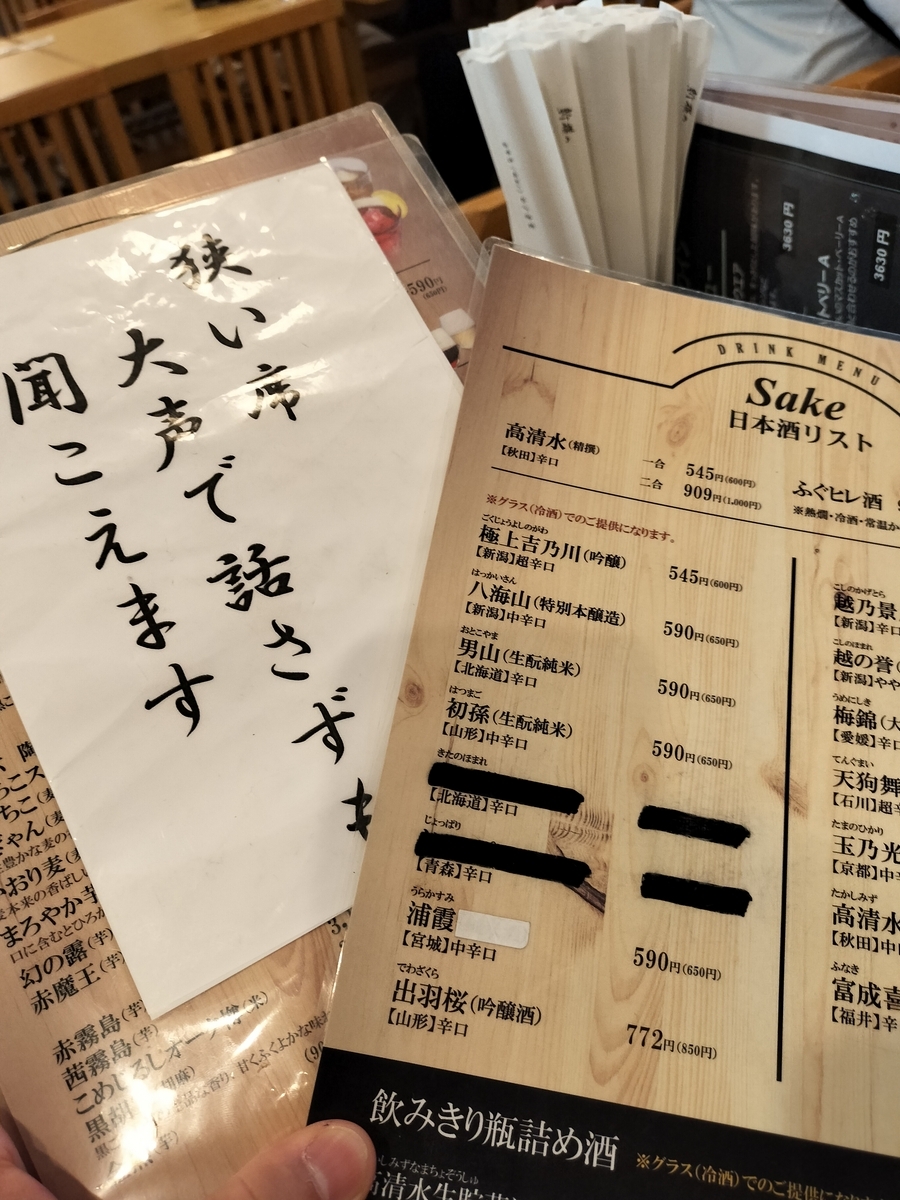 狭い席
大声で話さずも
聞こえます
590円
(650円)
3630円
3630円
DRINK MENU
Sake
日本酒リスト
高清水(精撰)
【秋田】辛口
一合 545円(600円)
二合 909円(1,000円)
ふぐヒレ酒
※熱燗・冷酒・常温か
※グラス(冷酒)でのご提供になります。
ごくじょうよしのがわ
極上吉乃川(吟醸)
【新潟】超辛口
545円(600円)
はっかいさん
八海山(特別本醸造)
【新潟】中辛口
590円(650円)
おとこやま
男山(生酛純米)
【北海道】辛口
590円(650円)
はつまご
初孫(生酛純米)
【山形】中辛口
590円(650円)
きたのほまれ
【北海道】辛口
じょっぱり
【青森】辛口
うらかすみ
浦霞
【宮城】中辛口
590円(650円)
でわざくら
出羽桜(吟醸酒)
【山形】辛口
772円(850円)
こしのかげとら
越乃景
【新潟】辛口
こしのほまれ
越の誉
【新潟】やや
うめにしき
梅錦(大
【愛媛】辛口
てんぐまい
天狗舞
【石川】超辛
たまのひかり
玉乃光
【京都】中辛
たかしみず
高清水
【秋田】中
ふなき
富成喜
【福井】辛
飲みきり瓶詰め酒
※グラス(冷酒)でのご提供になりま
しみずなまちょぞうしゅ
まろやか芋
口に含むとひろが
幻の露(芋)
赤魔王(芋)
赤霧島(芋)
茜霧島(芋)
こめじるしオーク樽(米)